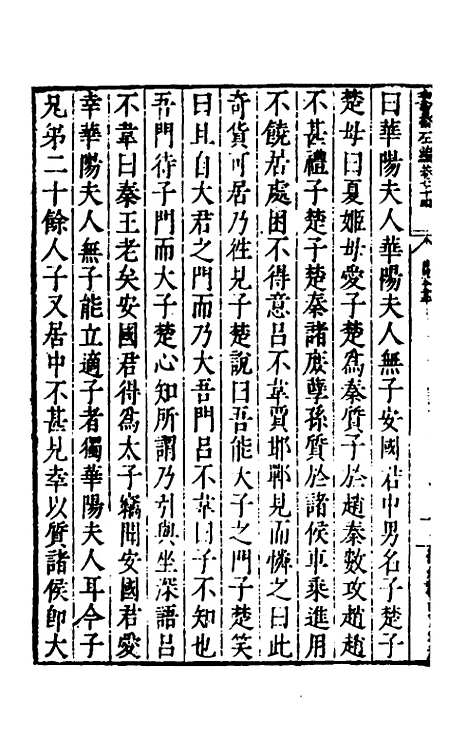 曰華陽夫人華陽夫人無子安國君中男名子楚子
楚母曰夏姬母愛子楚爲秦質子於趙秦數攻趙趙
不甚禮子楚子楚秦諸庶孽孫質於諸侯車乘進用
不饒居處困不得意呂不韋賈邯鄲見而憐之曰此
奇貨可居乃往見子楚說曰吾能大子之門子楚笑
曰且自大君之門而乃大吾門呂不韋曰子不知也
吾門待子門而大子楚心知所謂乃引與坐深語呂
不韋曰秦王老矣安國君得爲太子竊聞安國君愛
幸華陽夫人華陽夫人無子能立適子者獨華陽夫人耳今子
兄弟二十餘人子又居中不甚見幸久質諸侯卽大